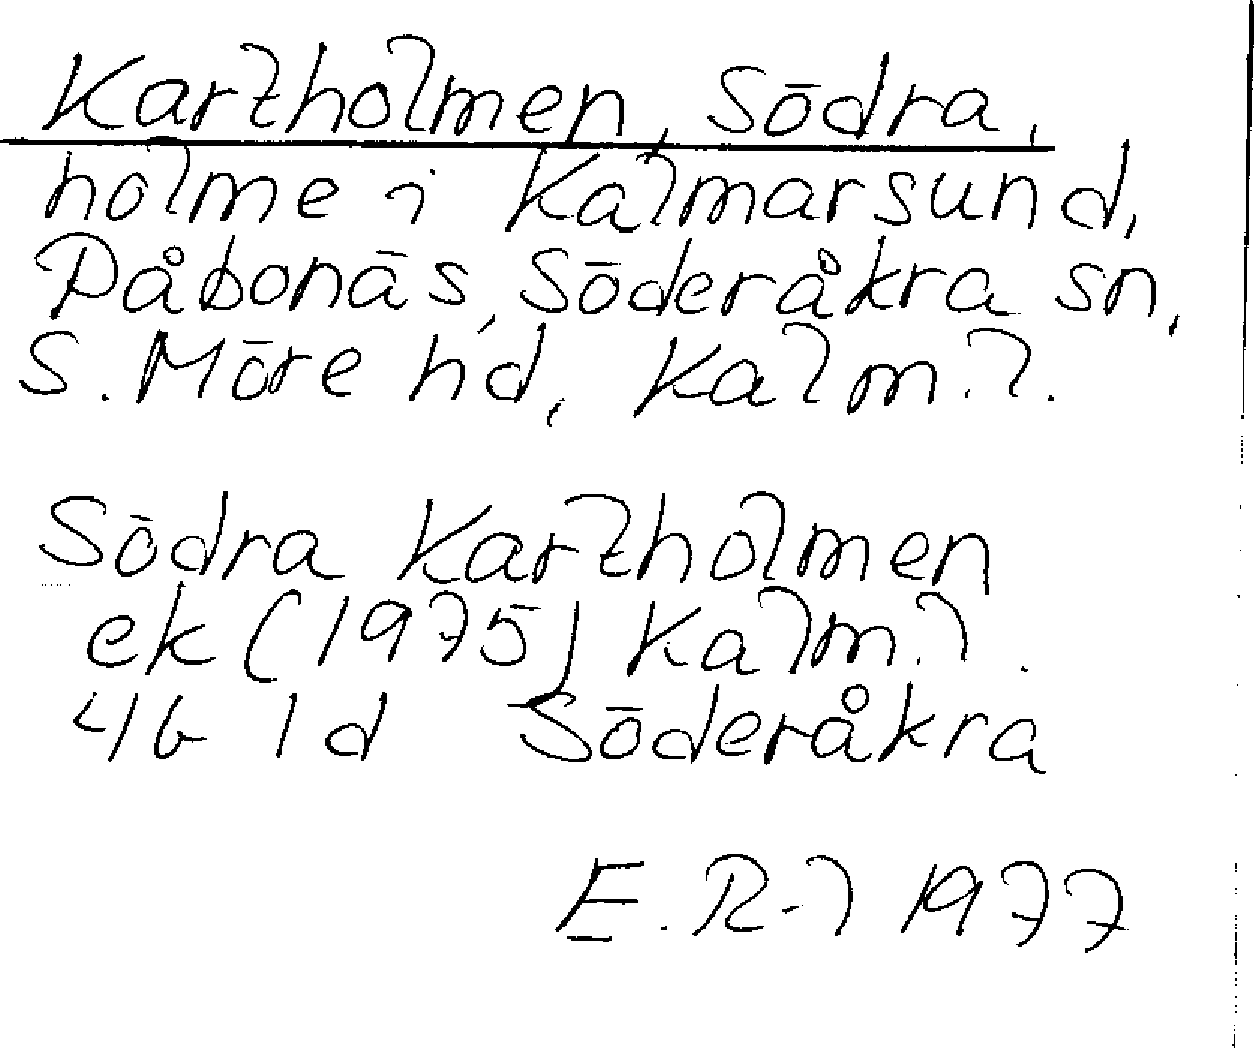 Karlholmen, Södra,
holme i Kalmarsund,
Påbonäs, Söderåkra sn,
S. Möre hd, Kalm. l.
Södra Karlholmen
ek (1975) Kalm. l.
4G 1d Söderåkra
E. R-l 1977